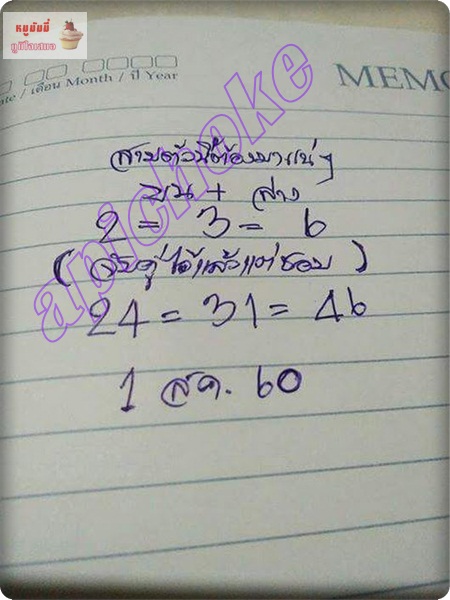 หมูอันนี่
ภูมิใจเสนอ
ate / เดือน Month / ปี Year
MEMO
apichoke
สามตัวนี้ต้องมาแน่ๆ
บน + ล่าง
2 = 3 = 6
(จับคู่ได้แล้วแต่ชอบ)
24 = 31 = 46
1 สค. 60